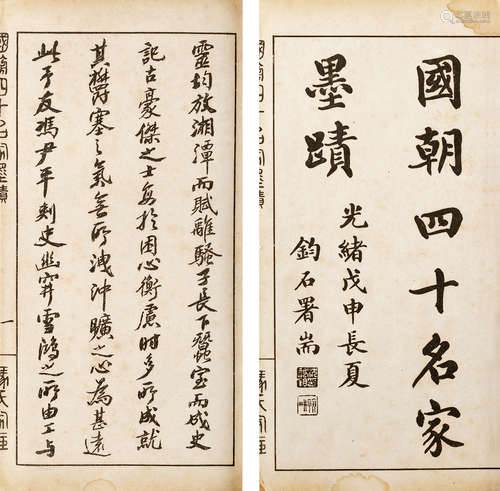 國朝四十名家
墨蹟
光緒戊申長夏
鈞石署耑
靈均放湘潭而賦離騷子長下蠶室而成史
記古豪傑之士每於困心衡慮時多所成就
其鬱塞之氣無所洩沖曠之心為甚遠
此予友馮尹平刺史幽窘雪鴻之所由工与
國朝四十名家墨蹟
一